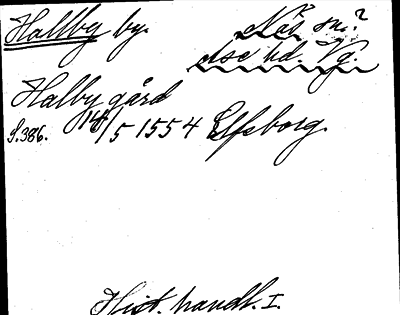 Hallby by. Näs sn.?
Åse hd. Vg.
Halby gård
S.386. 14/5 1554 Elfsborg.
Hist. handl. I.